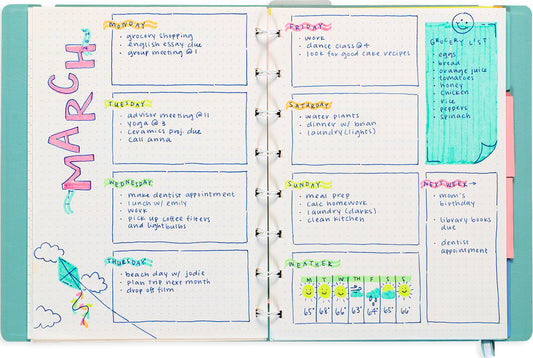 MARCH
MONDAY
· grocery shopping
· english essay due
· group meeting @ 1
TUESDAY
· advisor meeting @ 11
· yoga @ 3
· ceramics proj. due
· call anna
WEDNESDAY
· make dentist appointment
· lunch w/ emily
· work
· pick up coffee filters
and lightbulbs
THURSDAY
· beach day w/ jodie
· plan trip next month
· drop off film
FRIDAY
· work
· dance class @ 4
· look for good cake recipes
SATURDAY
· water plants
· dinner w/ brian
· laundry (lights)
SUNDAY
· meal prep
· calc homework
· laundry (darks)
· clean kitchen
WEATHER
M T W TH F S S
65° 68° 66° 63° 64° 65° 66°
GROCERY LIST
· eggs
· bread
· orange juice
· tomatoes
· honey
· chicken
· rice
· peppers
· spinach
NEXT WEEK →
· mom's
birthday
· library books
due
· dentist
appointment